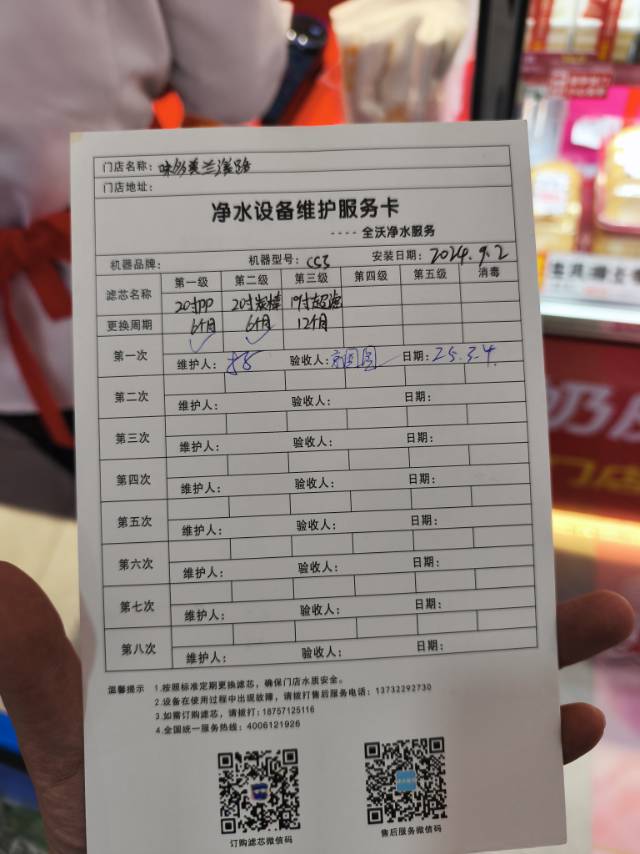 门店名称：味多美兰溪路
门店地址：
净水设备维护服务卡
----全沃净水服务
机器品牌： 机器型号：CS3 安装日期：2024.9.2
滤芯名称 第一级 第二级 第三级 第四级 第五级 消毒
20寸PP 20寸炭棒 19寸超滤
更换周期 6个月 6个月 12个月
第一次 维护人： 验收人： 日期：25.3.4.
第二次 维护人： 验收人： 日期：
第三次 维护人： 验收人： 日期：
第四次 维护人： 验收人： 日期：
第五次 维护人： 验收人： 日期：
第六次 维护人： 验收人： 日期：
第七次 维护人： 验收人： 日期：
第八次 维护人： 验收人： 日期：
温馨提示 1.按照标准定期更换滤芯，确保门店水质安全。
2.设备在使用过程中出现故障，请拨打售后服务电话：13732292730
3.如需订购滤芯，请拨打：18757125116
4.全国统一服务热线：4006121926
订购滤芯微信码
售后服务微信码